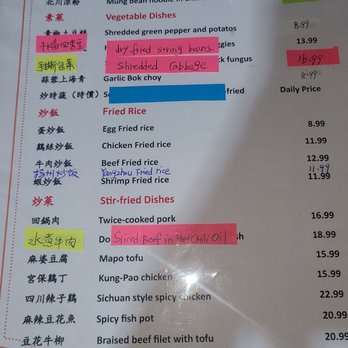 北川涼粉 Mung bean noodle in
素菜 Vegetable Dishes
Shredded green pepper and potatoes 8.99
干煸四季豆 dry fried string beans 13.99
手撕包菜 Shredded Cabbage k fungus 16.99
蒜蓉上海青 Garlic Bok choy 8.99
炒時蔬(時價) Daily Price
炒飯 Fried Rice
蛋炒飯 Egg Fried rice 8.99
鷄絲炒飯 Chicken Fried rice 11.99
牛肉炒飯 Beef Fried rice 12.99
揚州炒飯 Yangzhou Fried rice 11.99
蝦炒飯 Shrimp Fried rice 11.99
炒菜 Stir-fried Dishes
回鍋肉 Twice-cooked pork 16.99
水煮牛肉 Do Sliced Beef in Hot Chili Oil sh 18.99
麻婆豆腐 Mapo tofu 15.99
宮保鷄丁 Kung-Pao chicken 15.99
四川辣子鷄 Sichuan style spicy chicken 22.99
麻辣豆花魚 Spicy fish pot 20.99
豆花牛柳 Braised beef filet with tofu 20.99